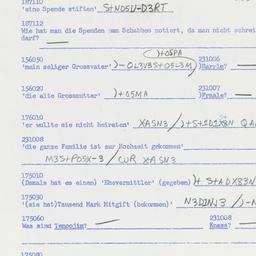 187110
'eine Spende stiften' StNDSU-D3RT
187112
Wie hat man die Spenden am Schabbes notiert, da man nicht schrei
darf?
)+OSPA
156050 231006
'mein seliger Grossvater' Harrle?
156020 231007
'die alte Grossmutter' )+OSMA Fraale?
176010
'er wollte sie nicht heiraten' XASN3
231008
'die ganze Familie ist zur Hochzeit gekommen'
M3S+POSX-3 / CUR XASN3
175010
(Damals hat es einen) 'Ehevermittler' (gegeben)
175030
'(sie hat)Tausend Mark Mitgift (bekommen)'
175060 231008
Was sind Tenoojim? Knass?